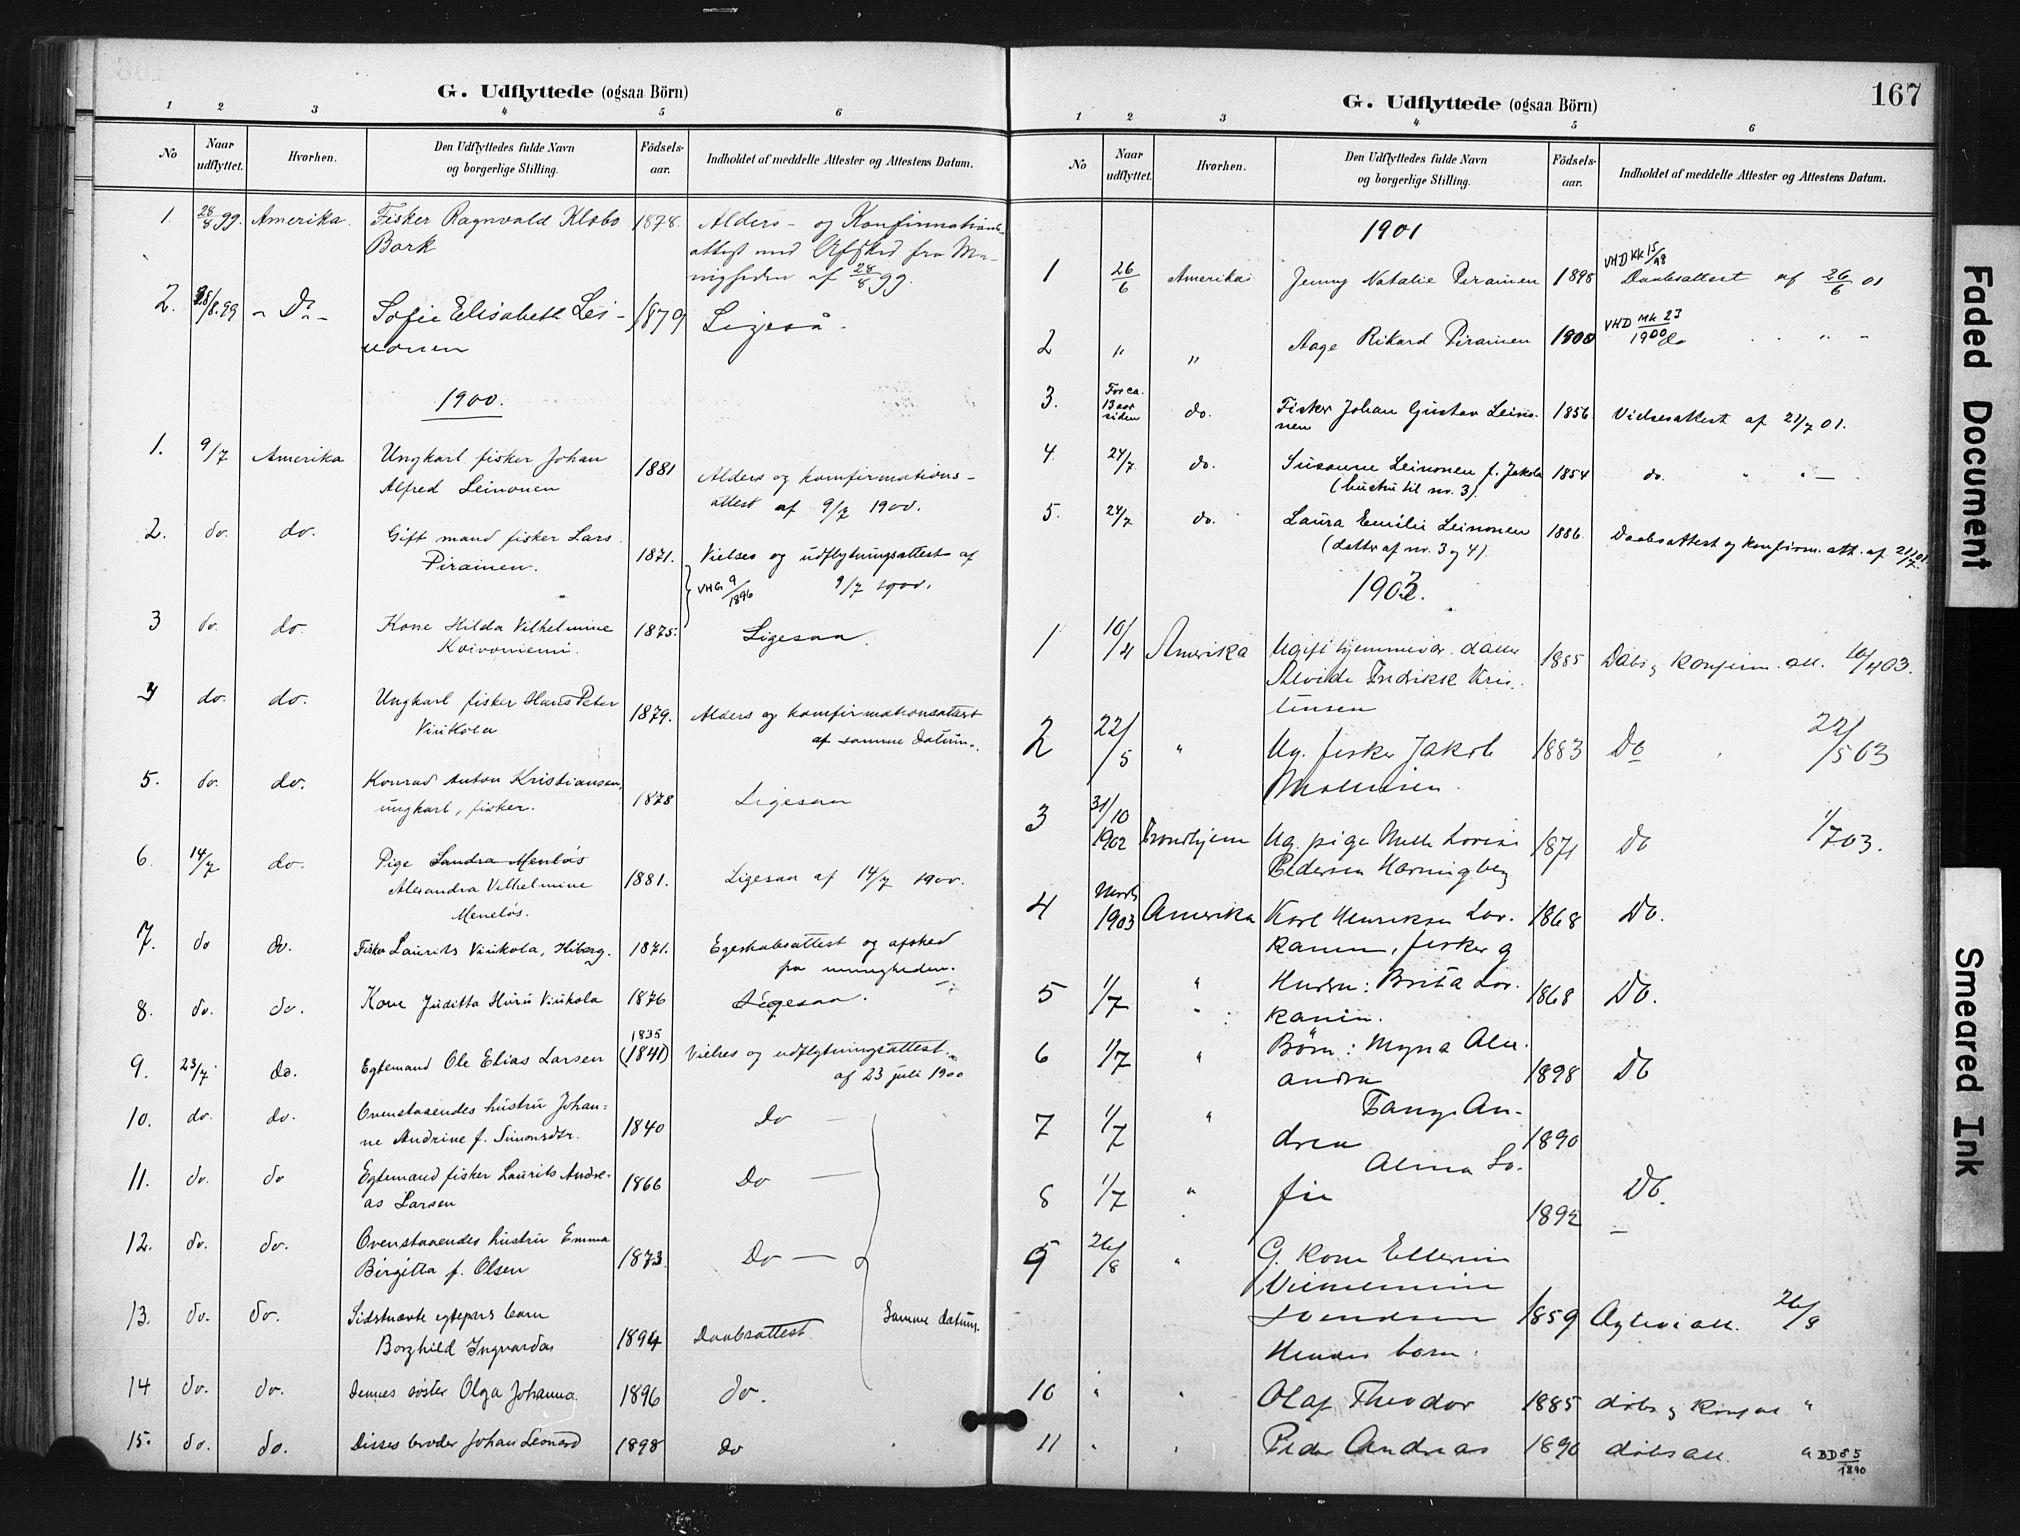 G. Udflyttede (ogsaa Börn)
1 2 3 4 5 6
No
Naar udflyttet.
Hvorhen.
Den Udflyttedes fulde Navn
og borgerlige Stilling.
Födsels-
aar.
Indholdet af meddelte Attester og Attestens Datum.
1. 28/8 99. Amerika. Fisker Ragnvald Klæbo 1878. Alders- og Konfirmations-
Bork attest med Afsked fra Me-
nigheden af 28/8 99.
2. 28/8.99 - Do - Sofie Elisabeth Lei- 1879 Ligeså.
nonen
1900.
1. 9/7 Amerika Ungkarl fisker Johan 1881 Alders og konfirmations-
Alfred Leinonen attest af 9/7 1900.
2. do. do. Gift mand fisker Lars 1871. Vielses og udflytningsattest af
Pirainen. VHG 9/1896 9/7 1900.
3 do. do. Kone Hilda Vilhelmine 1875. Ligesaa.
Koivoniemi.
4 do. do. Ungkarl fisker Hans Peter 1879. Alders og konfirmationsattest
Viikola af samme datum.
5. do. do. Konrad Anton Kristiansen, 1878 Ligesaa
ungkarl, fisker.
6. 14/7 do. Pige Sandra Meneløs
Alexandra Vilhelmine 1881. Ligesaa af 14/7 1900.
Meneløs.
7. do do. Fisker Laurits Viikola, Kiberg. 1871. Egeskabsattest og afsked
fra menigheden.
8. do. do. Kone Juditta Huru Viikola 1876 Ligesaa.
9. 23/7. do. Egtemand Ole Elias Larsen 1835 (1841) Vielses og udflytningsattest
af 23 juli 1900
10. do. do. Ovenstaaendes hustru Johan= 1840 Do —
ne Andrine f. Simonsdtr.
11. do. do Egtemand fisker Laurits Andre- 1866 Do —
as Larsen
12. do. do. Ovenstaaendes hustru Emma 1873. Do —
Birgitta f. Olsen
13. do. do. Sidstnævte egtepars barn Samme datum.
Borghild Ingvarda 1894 Daabsattest.
14 do. do. Dennes søster Olga Johanna 1896 do.
15. do. do. Disses broder Johan Leonard 1898 do
167
G. Udflyttede (ogsaa Börn)
1 2 3 4 5 6
No
Naar udflyttet.
Hvorhen.
Den Udflyttedes fulde Navn
og borgerlige Stilling.
Födsels-
aar.
Indholdet af meddelte Attester og Attestens Datum.
1901
VHD KK 15/98
1 26/6 Amerika Jenny Natalie Pirainen 1898 Daabsattest af 26/6 01
VHD MK 23/1900
2 " " Aage Rikard Pirainen 1900 do " "
3. For ca. 13 aar siden do. Fisker Johan Gustav Leino- 1856 Vielsesattest af 21/7 01.
nen
4 24/7. do. Susanne Leinonen f. Jakola 1854 do. " " —
(hustru til nr. 3).
5. 24/7 do. Laura Emilie Leinonen 1886. Daabsattest og konfirm. att. af 21/7 01.
(datter af nr. 3 og 4).
1903.
1 10/4 Amerika Ugift hjemmevær. datter 1885 Dåbs og konfirm. att. 10/4 03.
Alvide Fredrikke Kris-
tensen
2 22/5 " Ug. fisker Jakob 1883 Do 22/5 03
3 31/10 1902 Trondhjem Ug. pige Nille Lovise 1871 Do 1/7 03.
Pedersen Havningberg
4 1903 Amerika Karl Henriksen Lov- 1868 Do.
kanen, fisker og
5 1/7 " Hustru: Brita Lov- 1868 Do.
kanen.
6 1/7 " Børn: Myna Alex-
andra 1898 Do
7 1/7 " Fany An-
drea 1890
8 1/7 " Alma So-
fie 1892 Do.
9 26/8 " G. kone Ellen
Vilhelmine
Svendsen 1859 26/8
Hendes børn:
10 " " Olaf Theodor 1885 dåbs og konf att "
11 " " Peder Andreas 1890 dåbsatt. " BD 85/1890
Faded Document
Smeared Ink